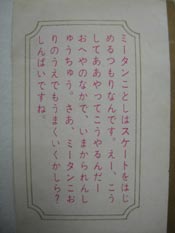 ミータンことしはスケートをはじ
めるつもりなんです。えー、こう
してああやってこうやるんだー
おへやのなかで、いまかられんし
ゅうちゅう。さあ、ミータンこお
りのうえでもうまくいくかしら？
しんぱいですね。